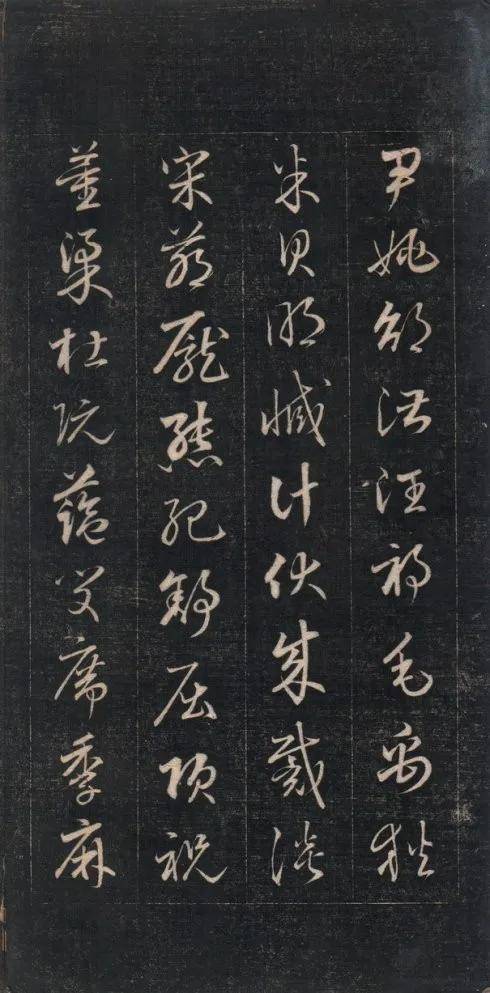 尹姚邵湛汪祁毛禹狄
米貝明臧計伏成戴談
宋茅龐熊紀舒屈項祝
董梁杜阮藍閔席季麻